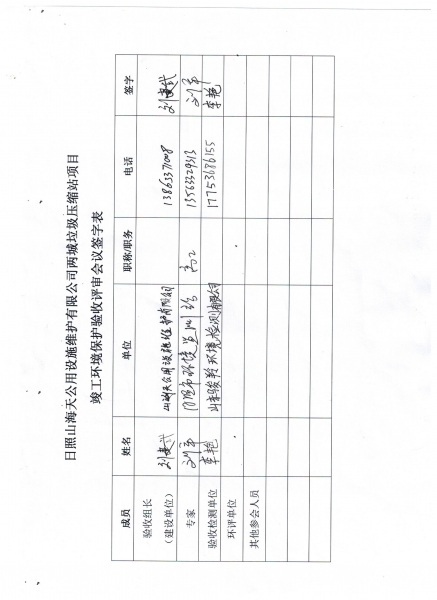 日照山海天公用设施维护有限公司两城垃圾压缩站项目
竣工环境保护验收评审会议签字表
成员 姓名 单位 职称/职务 电话 签字
验收组长
（建设单位） 山海天公用设施维护有限公司 13863371008
专家 高工 13563329313
验收检测单位 李艳 山东骏翔环境检测有限公司 17753686155 李艳
环评单位
其他参会人员